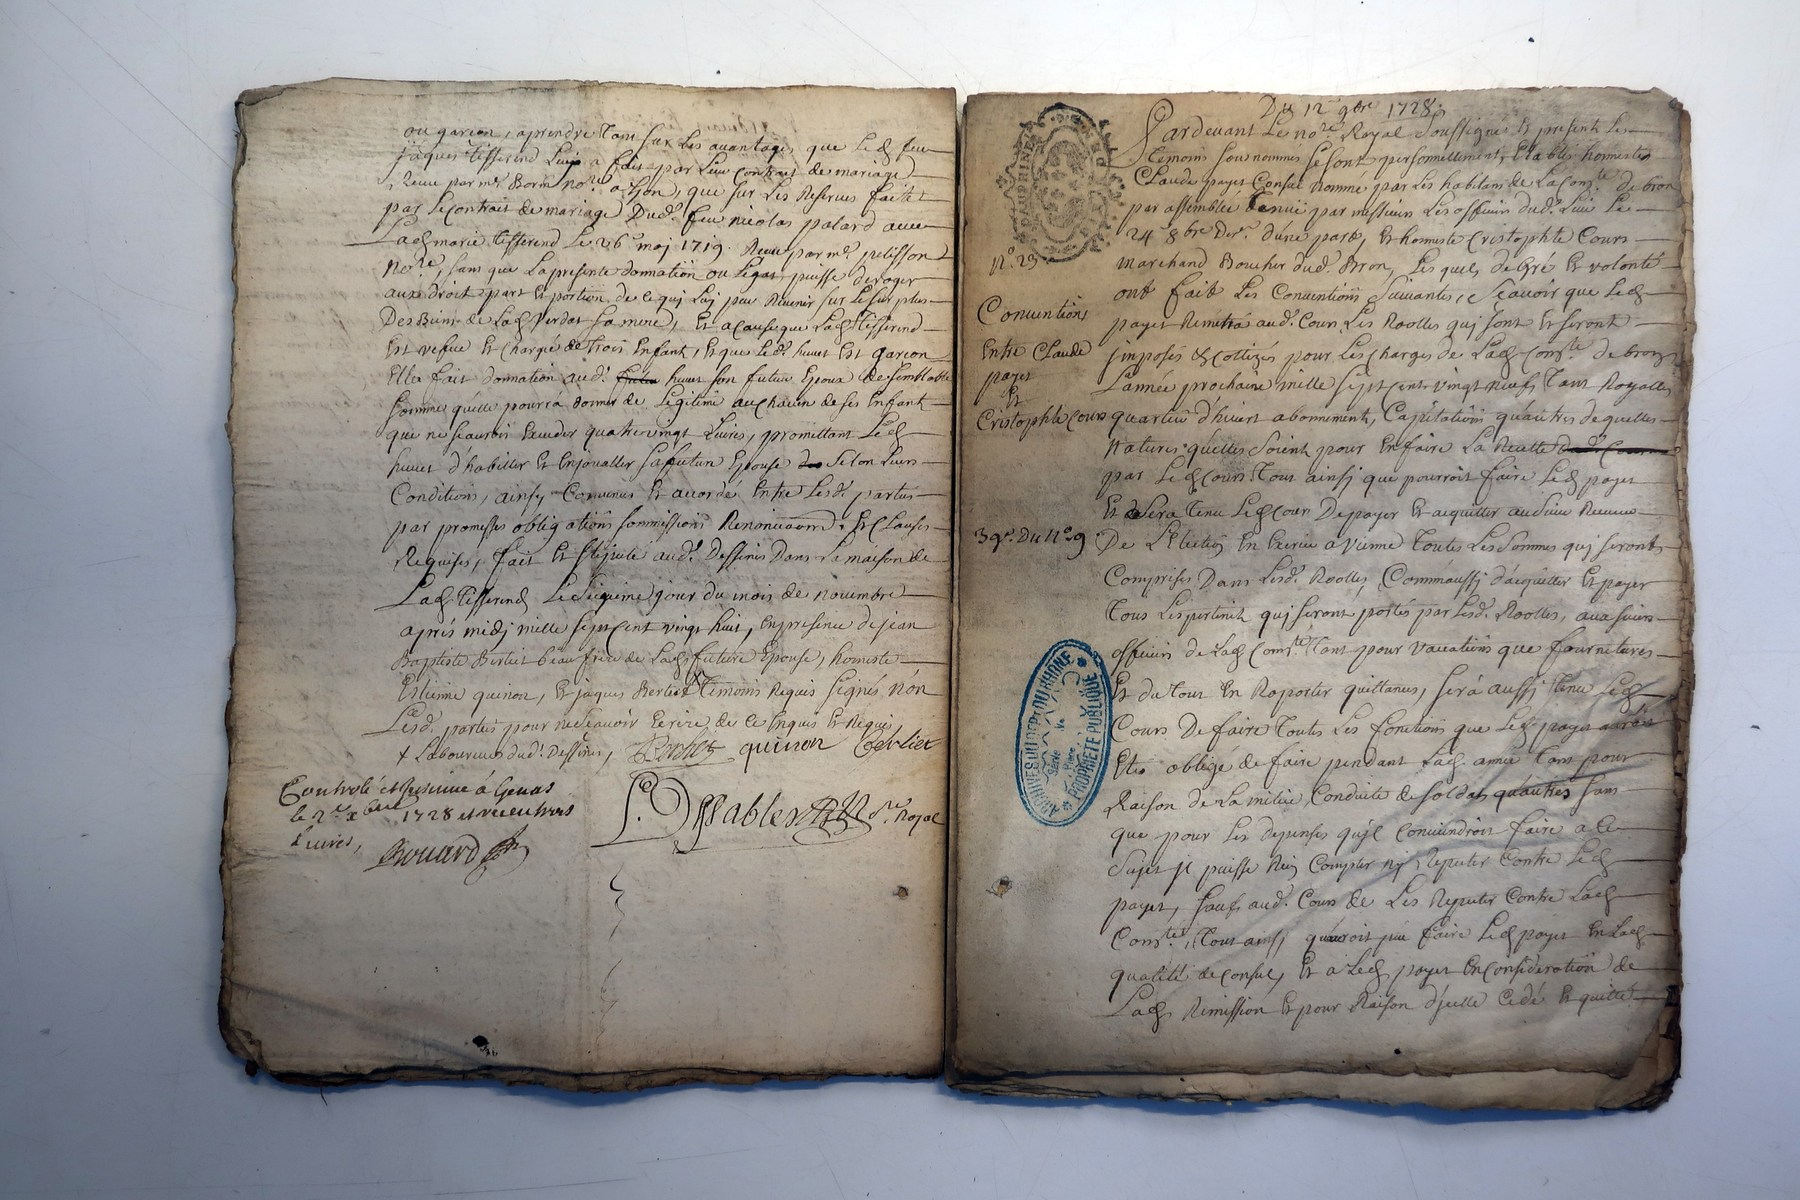 ou garcon, aprendre tant sur les auantages que led feu
jaques tisserend luy a fait par leur contrat de mariage
Receu par mr. Borin nore. a Lyon, que sur les Reserues faites
par le contrait de mariage dudt. feu nicolas palard auec
Lad marie tisserend le 26e may 1719. Receu par mr. pelisson
nore., sans que la presente donnation ou legat puisse deroger
aux droit part et portion de ce quj luj peu Reuenir sur le surplus
Des Biens de Lad Verdat sa mere, Et a cause que Lad tisserend
Est vefue Et Chargée de trois Enfant, et que ledt. huuet Est garcon
Ella fait donnation audt. huuet son futur Epoux de semblable
somme quelle pourrá donner de legitime au chacun de ses Enfant
que ne scauroit Exceder quatre vingt liures, promettant led
huuet d'habiller Et Enjoualler sa future Epouse selon leurs
Conditions, ainsy Conuenus Et accordé Entre lesd. parties
par promesses obligations sommissions Renonciations, Et Clauses
Requises, fait Et stipulé audt. Dessines Dans la maison de
Lad tisserend Le seizieme jour du mois de nouembre
aprés midj mille sept cent vingt huit, En presence de jean
Baptiste Berliet beau frere de Lad future Epouse, honneste
Estienne quinon, Et jaques Berliet + temoins Requis signés, nón
Lesd. parties pour ne scauoir Ecrire de ce Enquis Et Requis,
+ Laboureurs dudt. Dessines, quinon Berliet
Controlé et Insinué á Genas
le 2e xbre 1728 et receu trois
Liures,
Rouard
Royal
Du 12e 9bre 1728.
Pardeuant Le nore. Royal soussigné Et presents les
temoins sou nommés se sont personnellement Etablis honneste
Claude payet Consul nommé par les habitans de la Comte. de bron
par assemblée tenuë par messieurs les officiers dudt. lieu le
24 8bre Der. d'une part, Et honneste Cristophle Cours
Marchand Boucher dudt. Bron, Lesquels de gré Et volonté
ont fait les Conuentions suiuantes, scauoir que led
payet Remettrá audt. Cours les Roolles quj sont Et seront
jmposés & Cottizés pour les charges de Lad Comte. de bron
L'année prochaine mille sept cent vingt neuf tant Royalles
quartier d'hiuert abonnement, Capitation qu'autres de quelles
Natures quelles soient pour En faire la Recette
par led Cours tout ainsj que pourroit faire led payet
Et sera tenu led Cour De payer Et acquitter au sieur Receueur
De L'Election En Exercice a Vienne toutes les sommes quj seront
Comprises Dans lesdt. Roolles, Comm'aussj d'acquitter Et payer
tous les pertinens quj seront portés par lesdt. Roolles, aux sieurs
officiers de Lad Comte. tant pour vacations que fournitures
Et du tout En Raporter quittances, será aussj tenu led
Cours De faire toutes les fonctions que led payet
obligé de faire pendant Lad année tant pour
Raison de la milice Conduite de soldats qu'autres sans
que pour les depenses qu'jl Conuiendroit faire a ce
sujet jl puisse Rien Compter nj Reputer Contre led
payet, sauf audt. Cours de les Reputer Contre Lad
Comte., tout ainsj qu'auroit peu faire led payet En Lad
qualité de Consul, Et a led payet En Consideration de
Lad Remission Et pour Raison d'jcelle Cedé Et quitté
No. 23
Conuentions
Entre Claude
payet
Et
Cristophle Cours
39e. Du No. 9
DAUPHINÉ
ARCHIVES DU DÉPt DU RHONE
PROPRIÉTÉ PUBLIQUE
Série
Pièce
No